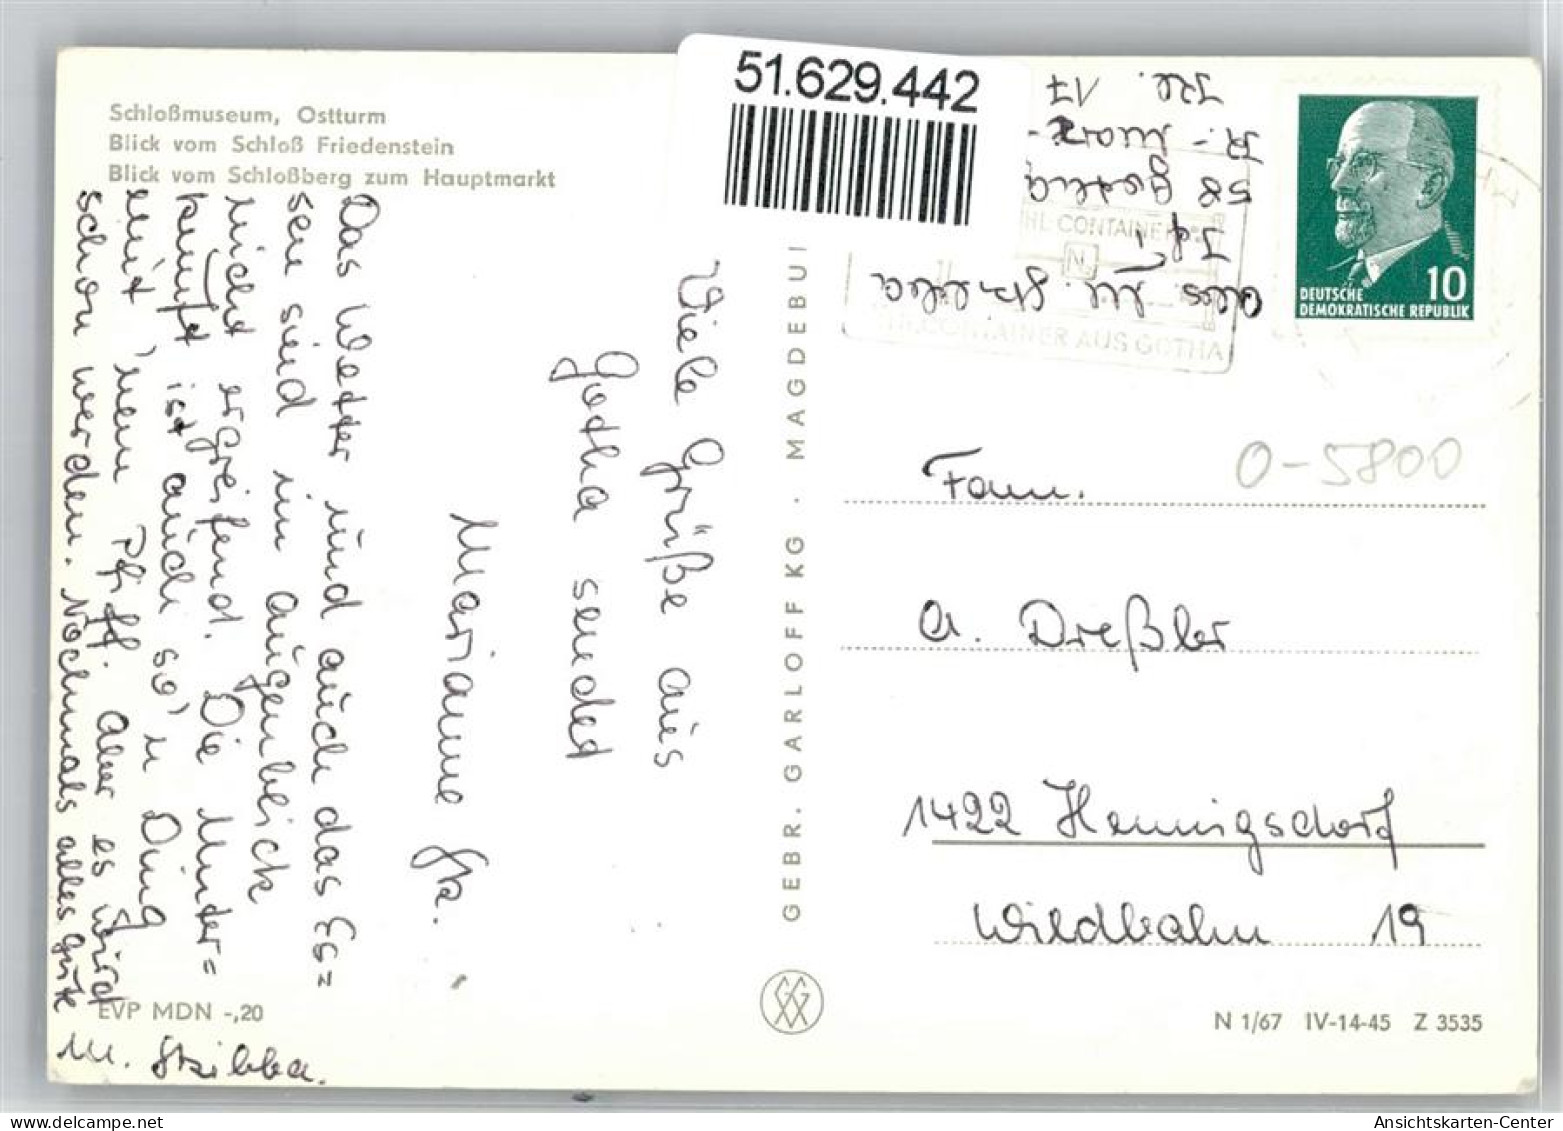 Schloßmuseum, Ostturm
Blick vom Schloß Friedenstein
Blick vom Schloßberg zum Hauptmarkt
51.629.442
Viele Grüße aus
Gotha sendet
Marianne
Das Wetter und auch das Es=
sen sind im Augenblick
nicht ergreifend. Die Unter=
kunft ist auch so 'n Ding
mit 'nem Pfiff. Aber es wird
schon werden. Nochmals alles Gute
M.
EVP MDN -,20
GEBR. GARLOFF KG . MAGDEBU
58 Gotha
17
HL CONTAINER
N
CONTAINER AUS GOTHA
10
DEUTSCHE
DEMOKRATISCHE REPUBLIK
O-5800
Fam.
A. Dreßler
1422 Hennigsdorf
Wildbahn 19
N 1/67 IV-14-45 Z 3535
Ansichtskarten-Center